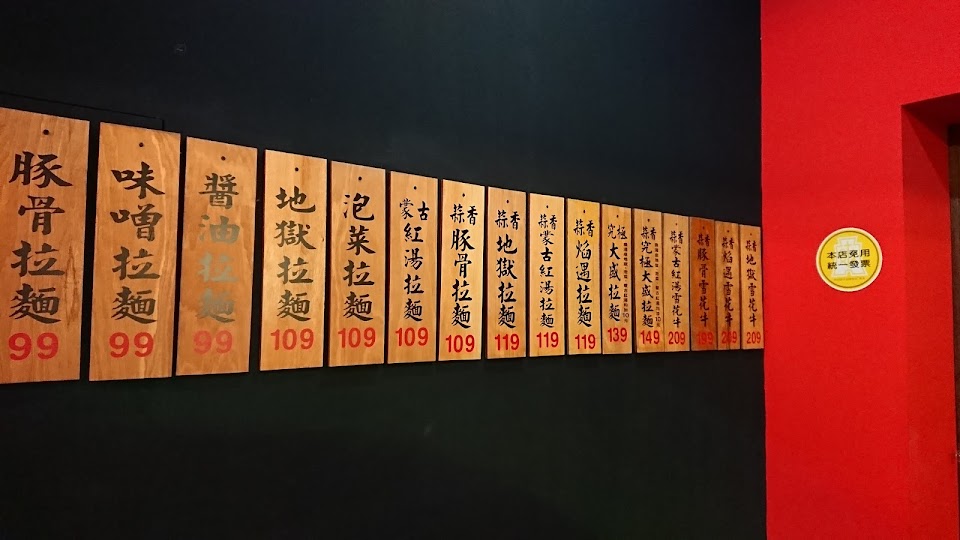 豚骨拉麵
99
味噌拉麵
99
醬油拉麵
99
地獄拉麵
109
泡菜拉麵
109
蒙古紅湯拉麵
109
蒜香豚骨拉麵
109
蒜香地獄拉麵
119
蒜香蒙古紅湯拉麵
119
蒜香焰遇拉麵
119
究極大盛拉麵
139
蒜香究極大盛拉麵
149
蒜香蒙古紅湯雪花牛
209
蒜香豚骨雪花牛
199
蒜香焰遇雪花牛
209
蒜香地獄雪花牛
209
本店免用
統一發票